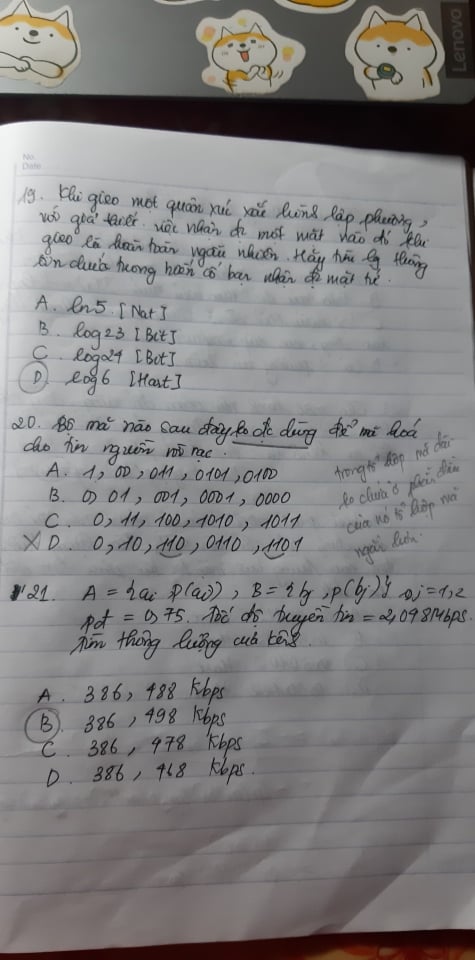 Lenovo
No.
Date
19. Khi gieo một quân xúc xắc hình lập phương,
với giả thiết việc nhận đc một mặt nào đó khi
gieo là hoàn toàn ngẫu nhiên. Hãy tìm lg thông
tin chứa trong bạn nhận đc mặt
A. ln5 [Nat]
B. log23 [Bit]
C. log24 [Bit]
D. log6 [Hart]
20. Bộ mã nào sau đây ko đc dùng để mã hoá
cho tin nguồn rời rạc.
A. 1, 00, 011, 0101, 0100
B. 0, 01, 001, 0001, 0000
C. 0, 11, 100, 1010, 1011
X D. 0, 10, 110, 0110, 1101
trong tổ hợp mã dài
ko chứa phần đầu
của nó tổ hợp mã
ngắn hơn.
21. A = {ai p(ai)}, B = {bj, p(bj)} i,j = 1,2
pđ = 0,75. Tốc độ truyền tin = 2,048Mbps.
Tìm thông lượng của kênh
A. 386, 488 Kbps
B. 386, 498 Kbps
C. 386, 478 Kbps
D. 386, 468 Kbps.